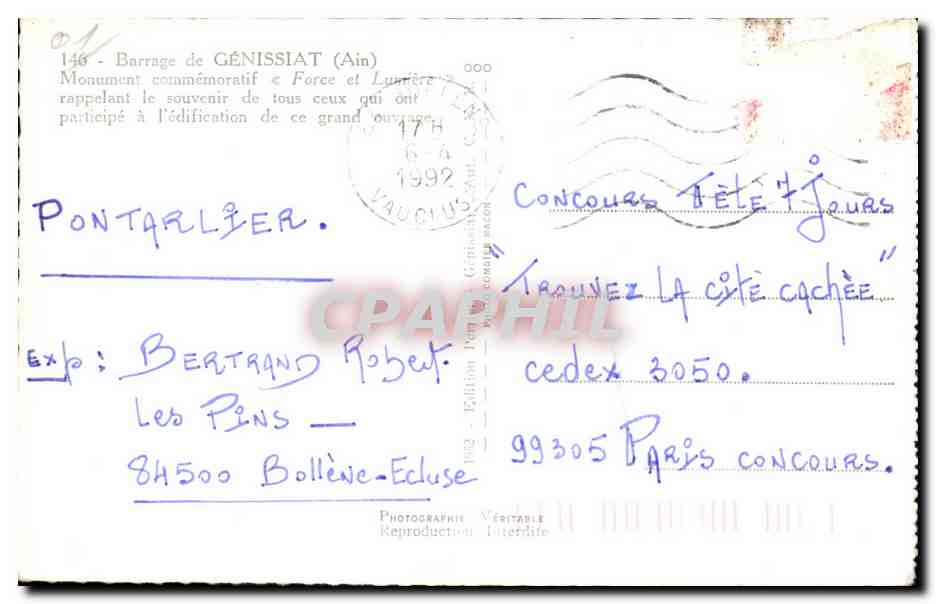 01
146 - Barrage de GÉNISSIAT (Ain)
Monument commémoratif « Force et Lumière »
rappelant le souvenir de tous ceux qui ont
participé à l'édification de ce grand ouvrage.
17 H
6-4
1992
VAUCLUSE
PONTARLIER.
Exp : BERTRAND Robert.
Les PINS —
84500 Bollène-Ecluse
CONCOURS TÉLÉ 7 JOURS
"TROUVEZ LA CITÉ CACHÉE"
cedex 3050.
99305 PARIS CONCOURS.
PHOTO COMBIER MACON
PHOTOGRAPHIE VÉRITABLE
Reproduction Interdite
CPARPHIL